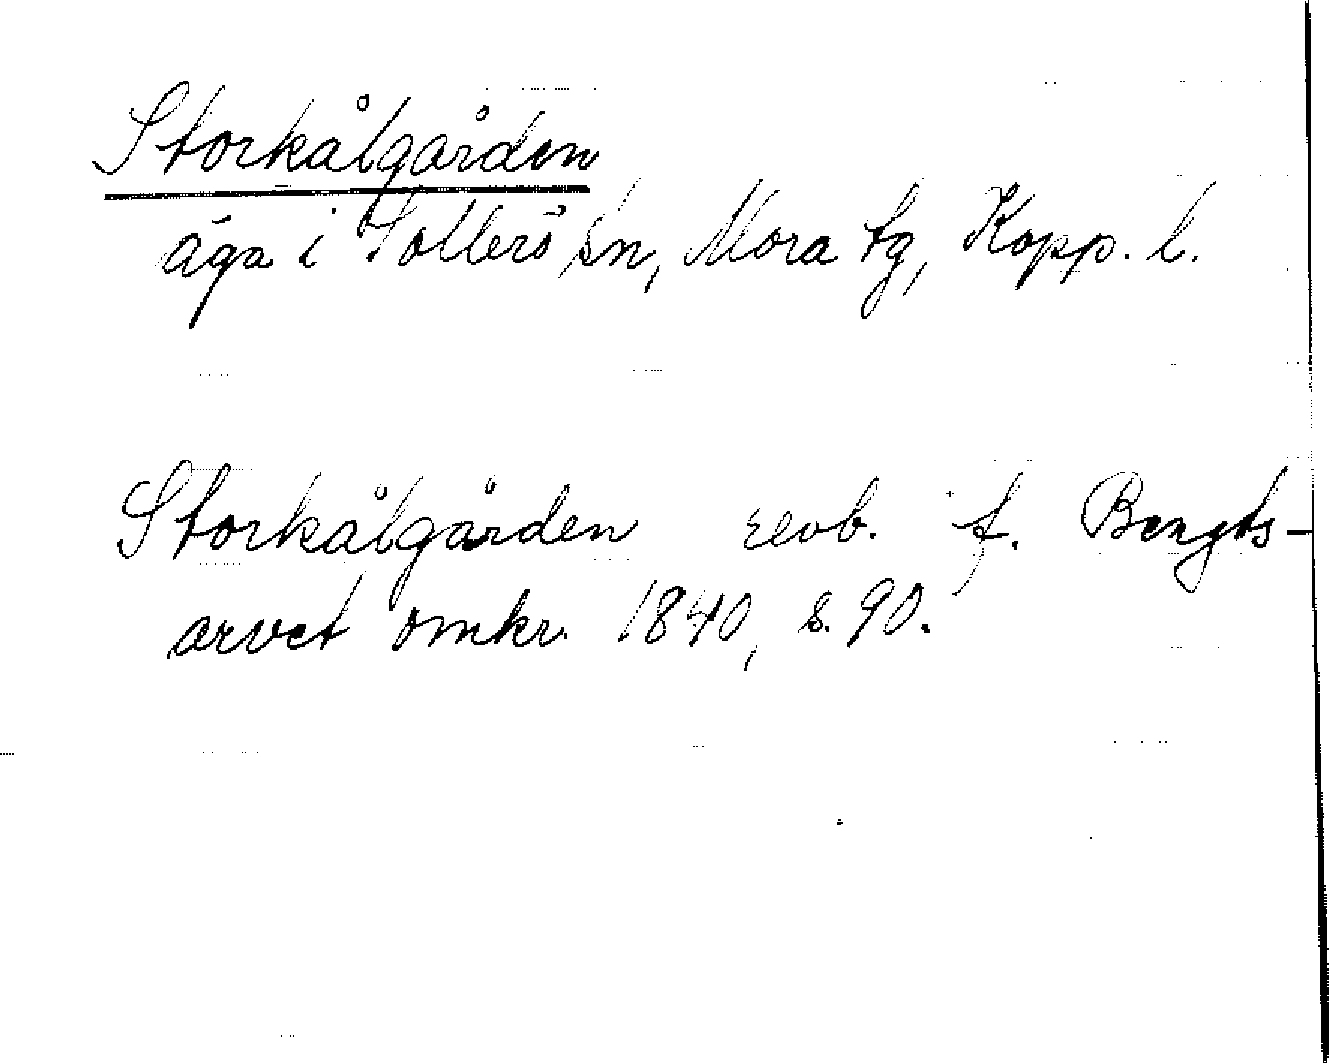 Storkålgården
äga i Sollerö sn, Mora tg, Kopp. l.
Storkålgården revb. f. Bengts-
arvet omkr. 1840, s. 90.